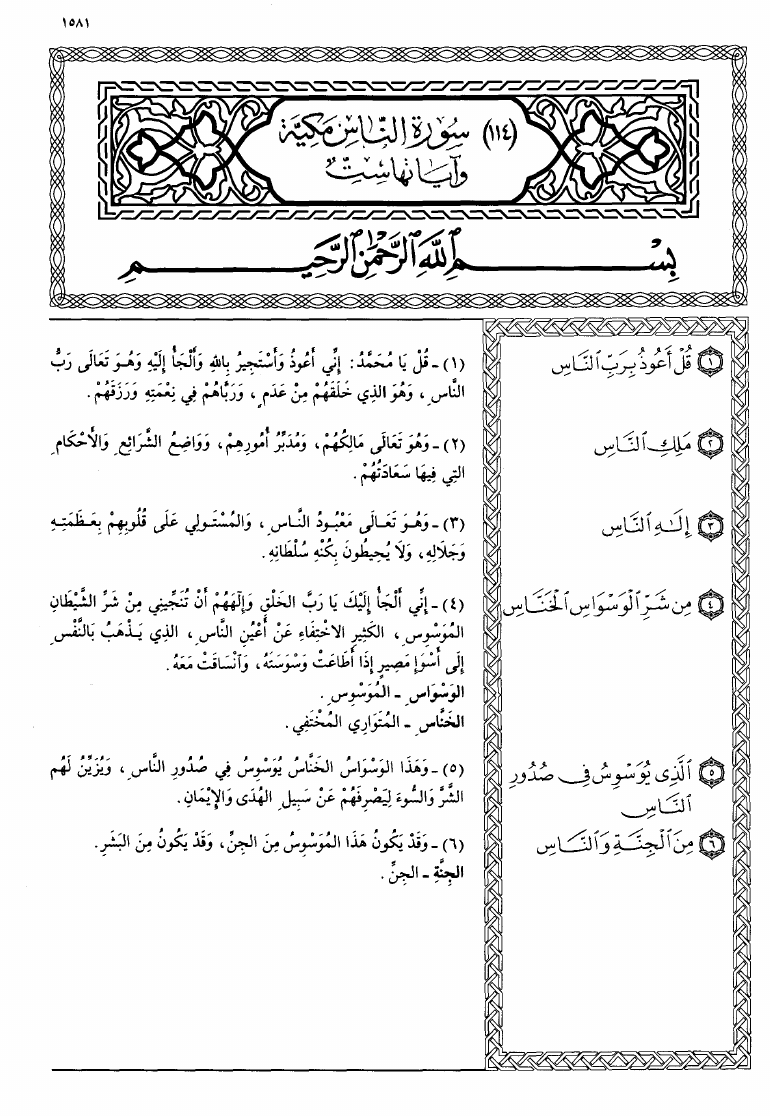 ١٥٨١
(١١٤) سُورَةِ النَّاسِ مَكِيَّة
وَآيَاتُهَا سِتٌّ
بِسْمِ ٱللَّهِ ٱلرَّحْمَٰنِ ٱلرَّحِيمِ
١ قُلْ أَعُوذُ بِرَبِّ ٱلنَّاسِ
٢ مَلِكِ ٱلنَّاسِ
٣ إِلَٰهِ ٱلنَّاسِ
٤ مِن شَرِّ ٱلْوَسْوَاسِ ٱلْخَنَّاسِ
٥ ٱلَّذِى يُوَسْوِسُ فِى صُدُورِ
ٱلنَّاسِ
٦ مِنَ ٱلْجِنَّةِ وَٱلنَّاسِ
(١) - قُلْ يَا مُحَمَّدُ: إِنِّي أَعُوذُ وَأَسْتَجِيرُ بِاللهِ وَأَلْجَأُ إِلَيْهِ وَهُوَ تَعَالَى رَبُّ
النَّاسِ، وَهُوَ الذِي خَلَقَهُمْ مِنْ عَدَمٍ، وَرَبَّاهُمْ فِي نِعْمَتِهِ وَرَزَقَهُمْ.
(٢) - وَهُوَ تَعَالَى مَالِكُهُمْ، وَمُدَبِّرُ أُمُورِهِمْ، وَوَاضِعُ الشَّرَائِعِ وَالأَحْكَامِ
التِي فِيهَا سَعَادَتُهُمْ.
(٣) - وَهُوَ تَعَالَى مَعْبُودُ النَّاسِ، وَالمُسْتَولِي عَلَى قُلُوبِهِمْ بِعَظَمَتِهِ
وَجَلَالِهِ، وَلَا يُحِيطُونَ بِكُنْهِ سُلْطَانِهِ.
(٤) - إِنِّي أَلْجَأُ إِلَيْكَ يَا رَبَّ الخَلْقِ وَإِلَهَهُمْ أَنْ تُنَجِّيَنِي مِنْ شَرِّ الشَّيْطَانِ
المُوَسْوِسِ، الكَثِيرِ الاخْتِفَاءِ عَنْ أَعْيُنِ النَّاسِ، الذِي يَذْهَبُ بَالنَّفْسِ
إِلَى أَسْوَإِ مَصِيرٍ إِذَا أَطَاعَتْ وَسْوَسَتَهُ، وَآنْسَاقَتْ مَعَهُ.
الوَسْوَاسِ - المُوَسْوِسِ.
الخَنَّاسِ - المُتَوَارِي المُخْتَفِي.
(٥) - وَهَذَا الوَسْوَاسُ الخَنَّاسُ يُوَسْوِسُ فِي صُدُورِ النَّاسِ، وَيُزَيِّنُ لَهُم
الشَّرَّ وَالسُّوءَ لِيَصْرِفَهُمْ عَنْ سَبِيلِ الهُدَى وَالإِيْمَانِ.
(٦) - وَقَدْ يَكُونُ هَذَا المُوَسْوِسُ مِنَ الجِنِّ، وَقَدْ يَكُونُ مِنَ البَشَرِ.
الجِنَّةِ - الجِنِّ.